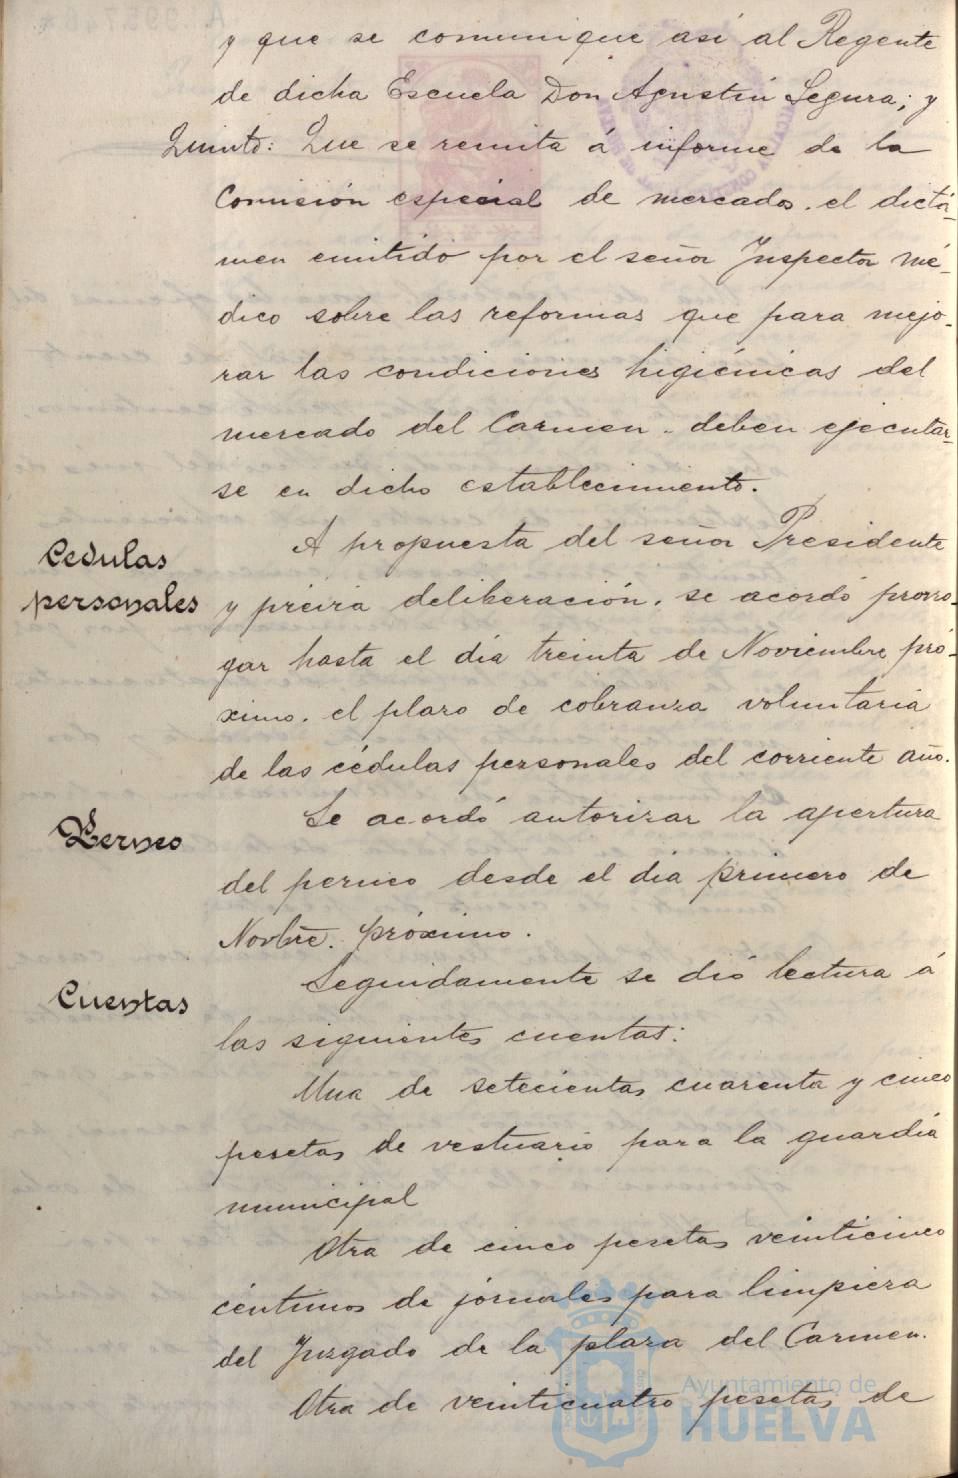 y que se comunique así al Regente
de dicha Escuela Don Agustín Segura; y
Quinto: Que se remita á informe de la
Comisión especial de mercados, el dictá-
men emitido por el señor Inspector mé-
dico sobre las reformas que para mejo-
rar las condiciones higiénicas del
mercado del Carmen, deben ejecutar-
se en dicho establecimiento.
Cedulas
personales
A propuesta del señor Presidente
y previa deliberación, se acordó prorro-
gar hasta el día treinta de Noviembre pró-
ximo, el plazo de cobranza voluntaria
de las cédulas personales del corriente año.
Perneo
Se acordó autorizar la apertura
del perneo desde el dia primero de
Novbre. próximo.
Cuentas
Seguidamente se dió lectura á
las siguientes cuentas:
Una de setecientas cuarenta y cinco
pesetas de vestuario para la guardia
municipal
Otra de cinco pesetas veinticinco
céntimos de jornales para limpieza
del Juzgado de la plaza del Carmen.
Otra de veinticuatro pesetas de
Ayuntamiento de
HUELVA